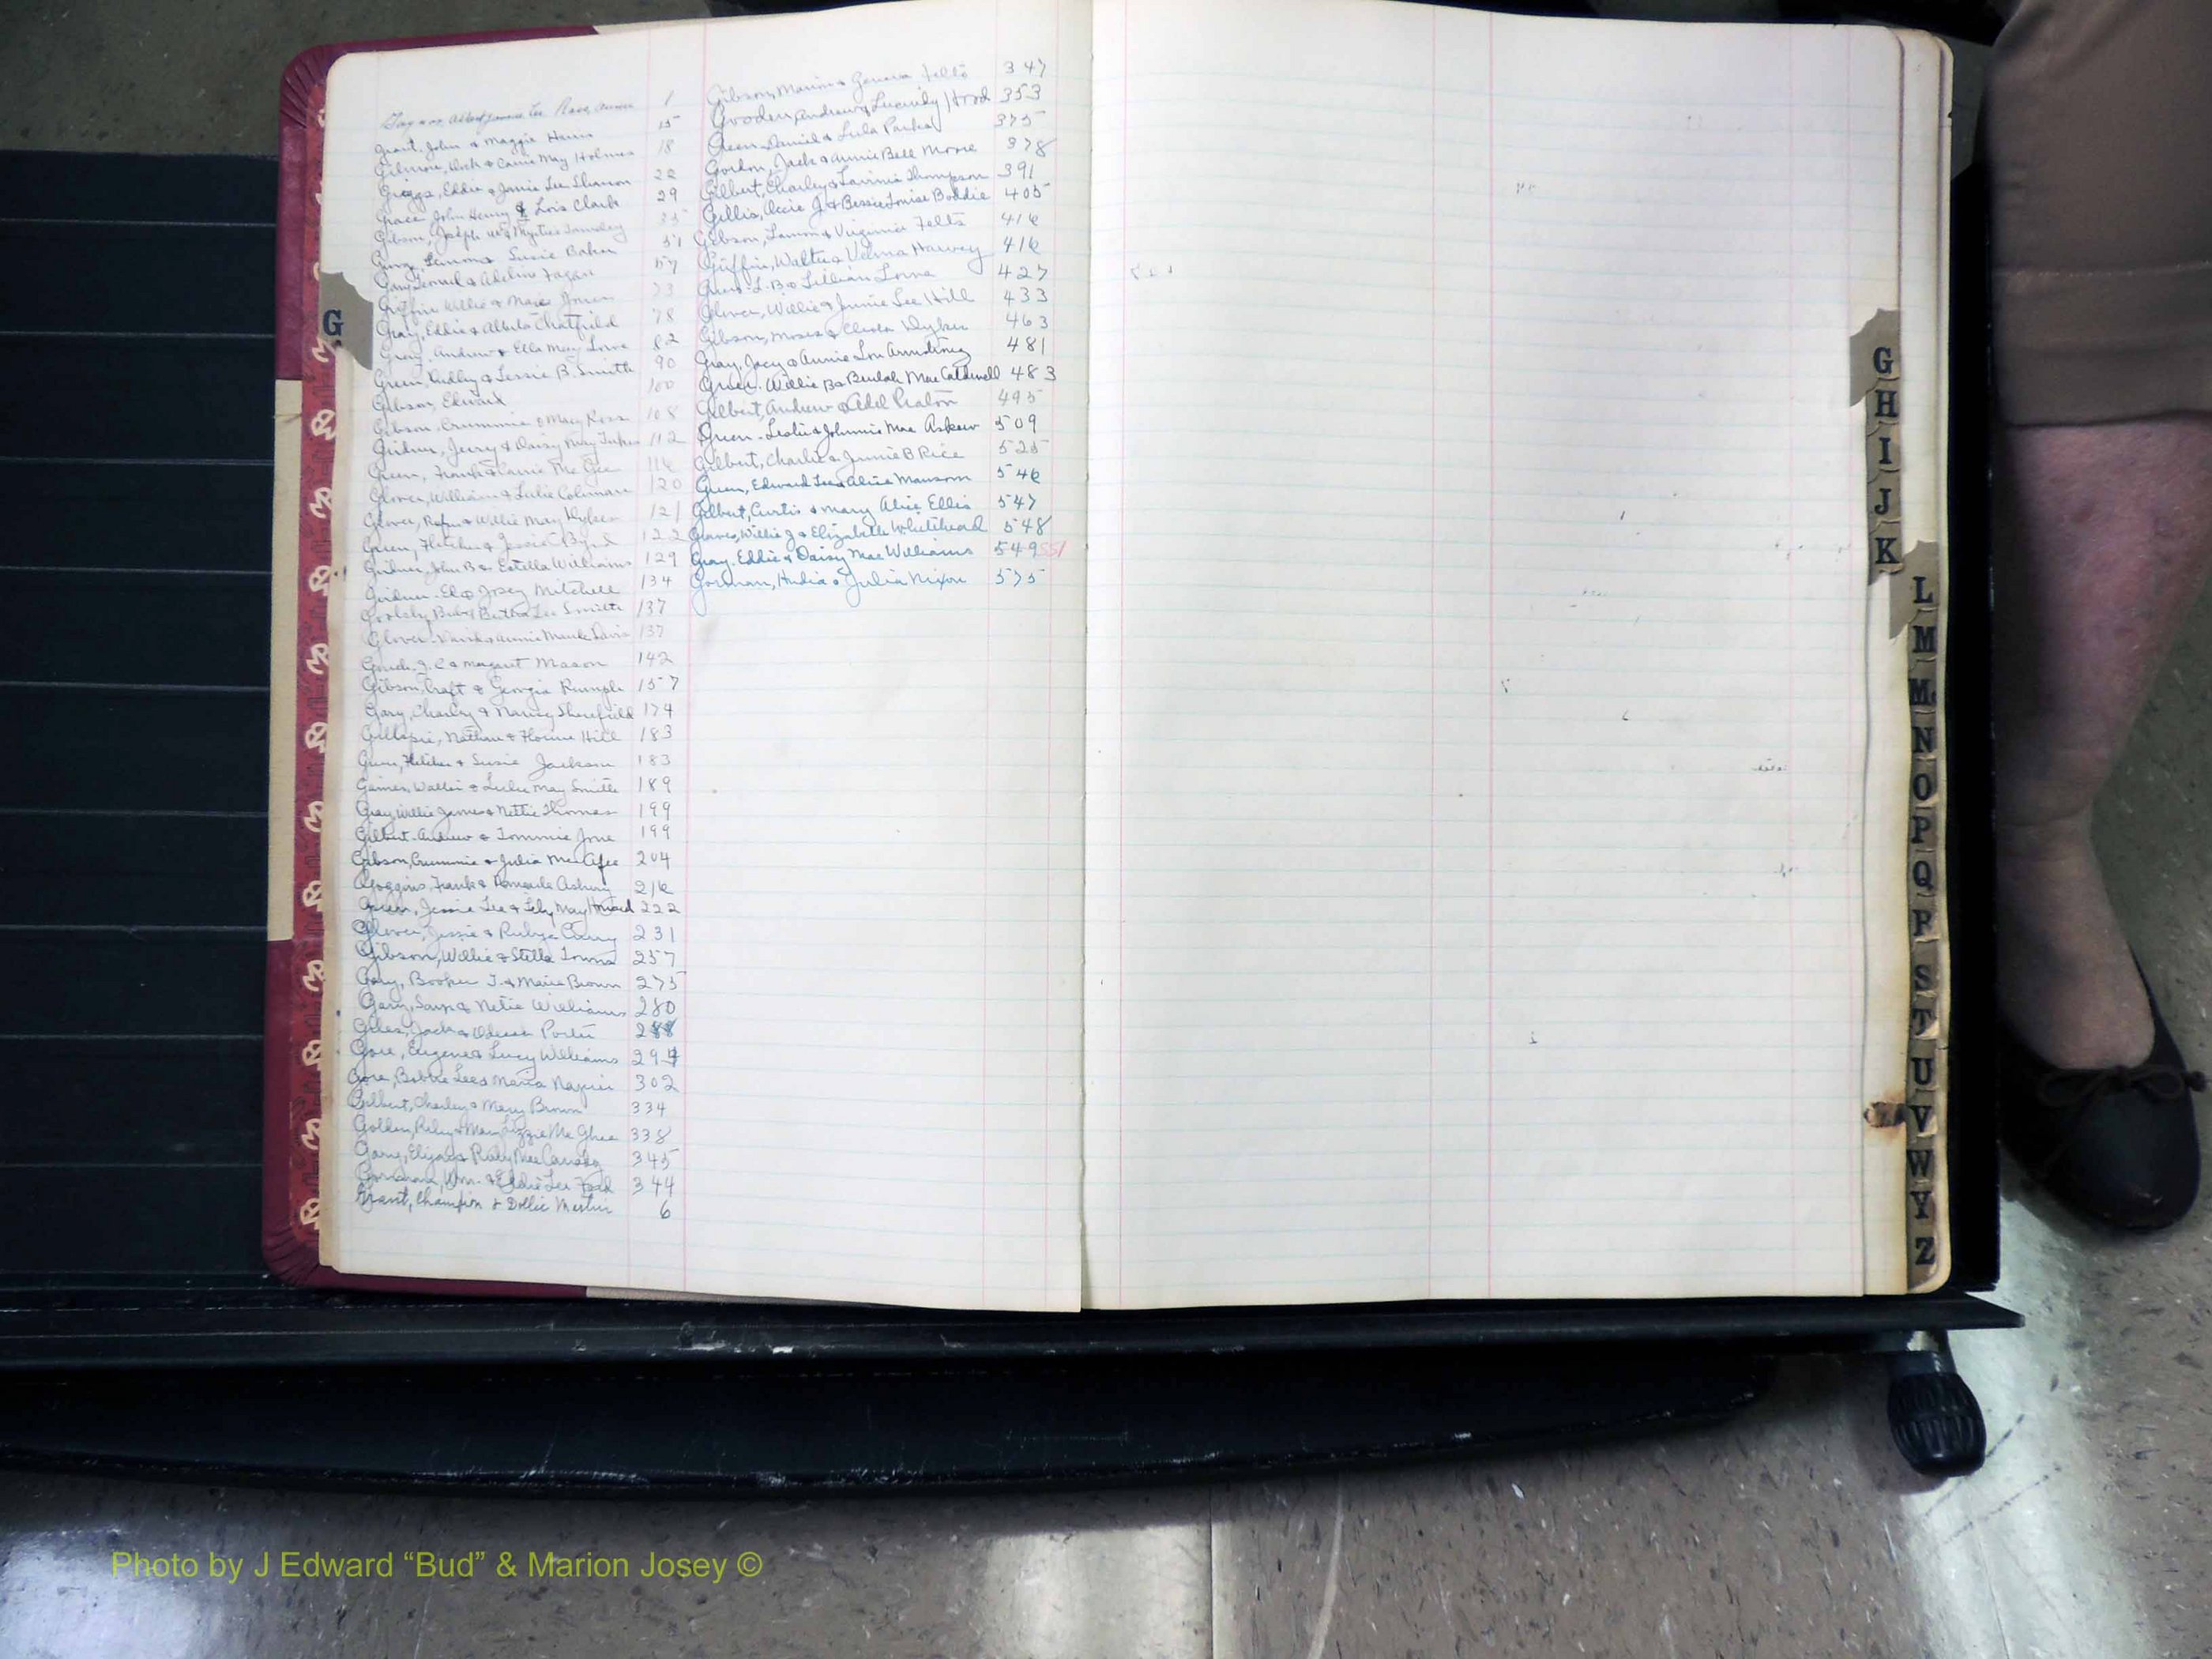 Albert Jimmie Lee 1
Grant, John & Maggie Harris 15
Gilmore, & Carrie May Holmes 18
Griggs, Eddie & Janie Lee Shannon 22
Grace, John Henry & Lois Clark 29
Gibson, Joseph 35
& Susie Baker 51
Gary, & Adeline Fagan 57
Griffin, Willie & Jones 73
Gray, Eddie & Alberta Chatfield 78
Gray, Andrew & Ella May Lowe 82
Green, Dudley & Jessie B. Smith 90
Gibson, Edward 100
Gibson, Crummie & Mary Ross 108
Girdner, Jerry & Daisy May 112
Green, Frank & Carrie Mc Gee 116
Glover, William & Lulie Coleman 120
Glover, Rufus & Willie May Dykes 121
Green, Fletcher & Jessie Byrd 122
Girdner, John B & Estella Williams 129
Girdner, Ed & Josey Mitchell 134
Goolsby, & Bertha Lee Smith 137
Glover, & Annie Maude Davis 137
J. C & Margaret Mason 142
Gibson, Craft & Georgia Rumph 157
Gary, Charley & Nancy Sherefield 174
Gillispie, Nathan & Hill 183
Green, Fletcher & Susie Jackson 183
Gaines, Walter & Lulu May Smith 189
Gray, Willie James & Nettie Thomas 199
Gilbert, Andrew & Tommie 199
Gibson, Crummie & Julia 204
Goggins, Frank & 216
Green, Jessie Lee & May 222
Glover, Jessie & Rubye 231
Gibson, Willie & Stella Towns 257
Gary, Booker T. & Marie Brown 275
Gary, Sam & Netie Williams 280
Giles, Jack & Odessa Porter 288
Gore, Eugene & Lucy Williams 294
Gore, Bobbie Lee & 302
Gilbert, Charley & Mary Brown 334
Golden, Riley & Mary Lizzie Mc Ghee 338
Gary, & Ruby Mae 345
Wm. & Eddie Lee 344
Grant, Champion & Dollie 6
Gibson, Marion & Geneva Felts 347
Gooden, Andrew & Hood 353
Green, Daniel & Lula Parks 375
Gordon, Jack & Annie Bell Moore 378
Gilbert, Charley & Lavinia Thompson 391
Gillis, Ocie J. & Bessie Louise Boddie 405
Gibson, & Virginia Felts 416
Griffin, Walter & Velma Harvey 416
Green, L. B & Lillian Lowe 427
Glover, Willie & Junie Lee Hill 433
Gibson, Moses & Cleola Dykes 463
Gray, & Annie Lou Armstrong 481
Green, Willie B & Beulah Mae Caldwell 483
Gilbert, Andrew & 495
Green, Leslie & Johnnie Mae Askew 509
Gilbert, Charlie & Junie B Rice 525
Green, Edward Lee & Alice Mansom 546
Gilbert, Curtis & Mary Alice Ellis 547
Glover, Willie J & Elizabeth Whitehead 548
Gray, Eddie & Daisy Mae Williams 549 551
Gorman, & Julia Nixon 575
G
G
H
I
J
K
L
M
Mc
N
O
P
Q
R
S
T
U
V
W
Y
Z
Photo by J Edward “Bud” & Marion Josey ©